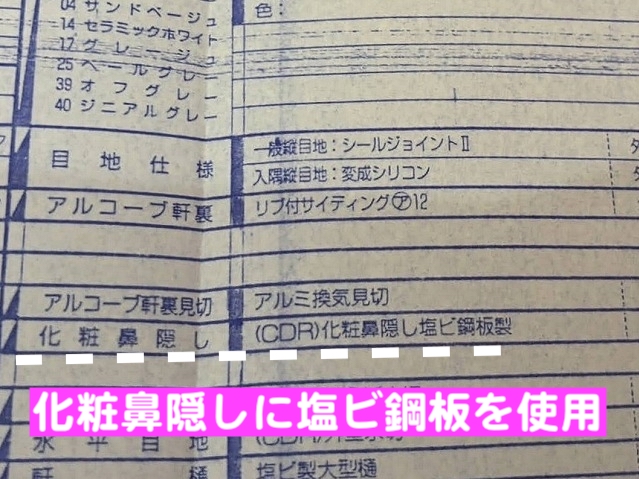 04 サンドベージュ
色:
14 セラミックホワイト
17 グレージュ
25 ペールグレー
39 オフグレー
40 ジニアルグレー
目地仕様
一般縦目地:シールジョイントⅡ
入隅縦目地:変成シリコン
アルコーブ軒裏
リブ付サイディング㋐12
アルコーブ軒裏見切
アルミ換気見切
化粧鼻隠し
(CDR)化粧鼻隠し塩ビ鋼板製
化粧鼻隠しに塩ビ鋼板を使用
水平目地
(CDR)
軒樋
塩ビ製大型樋